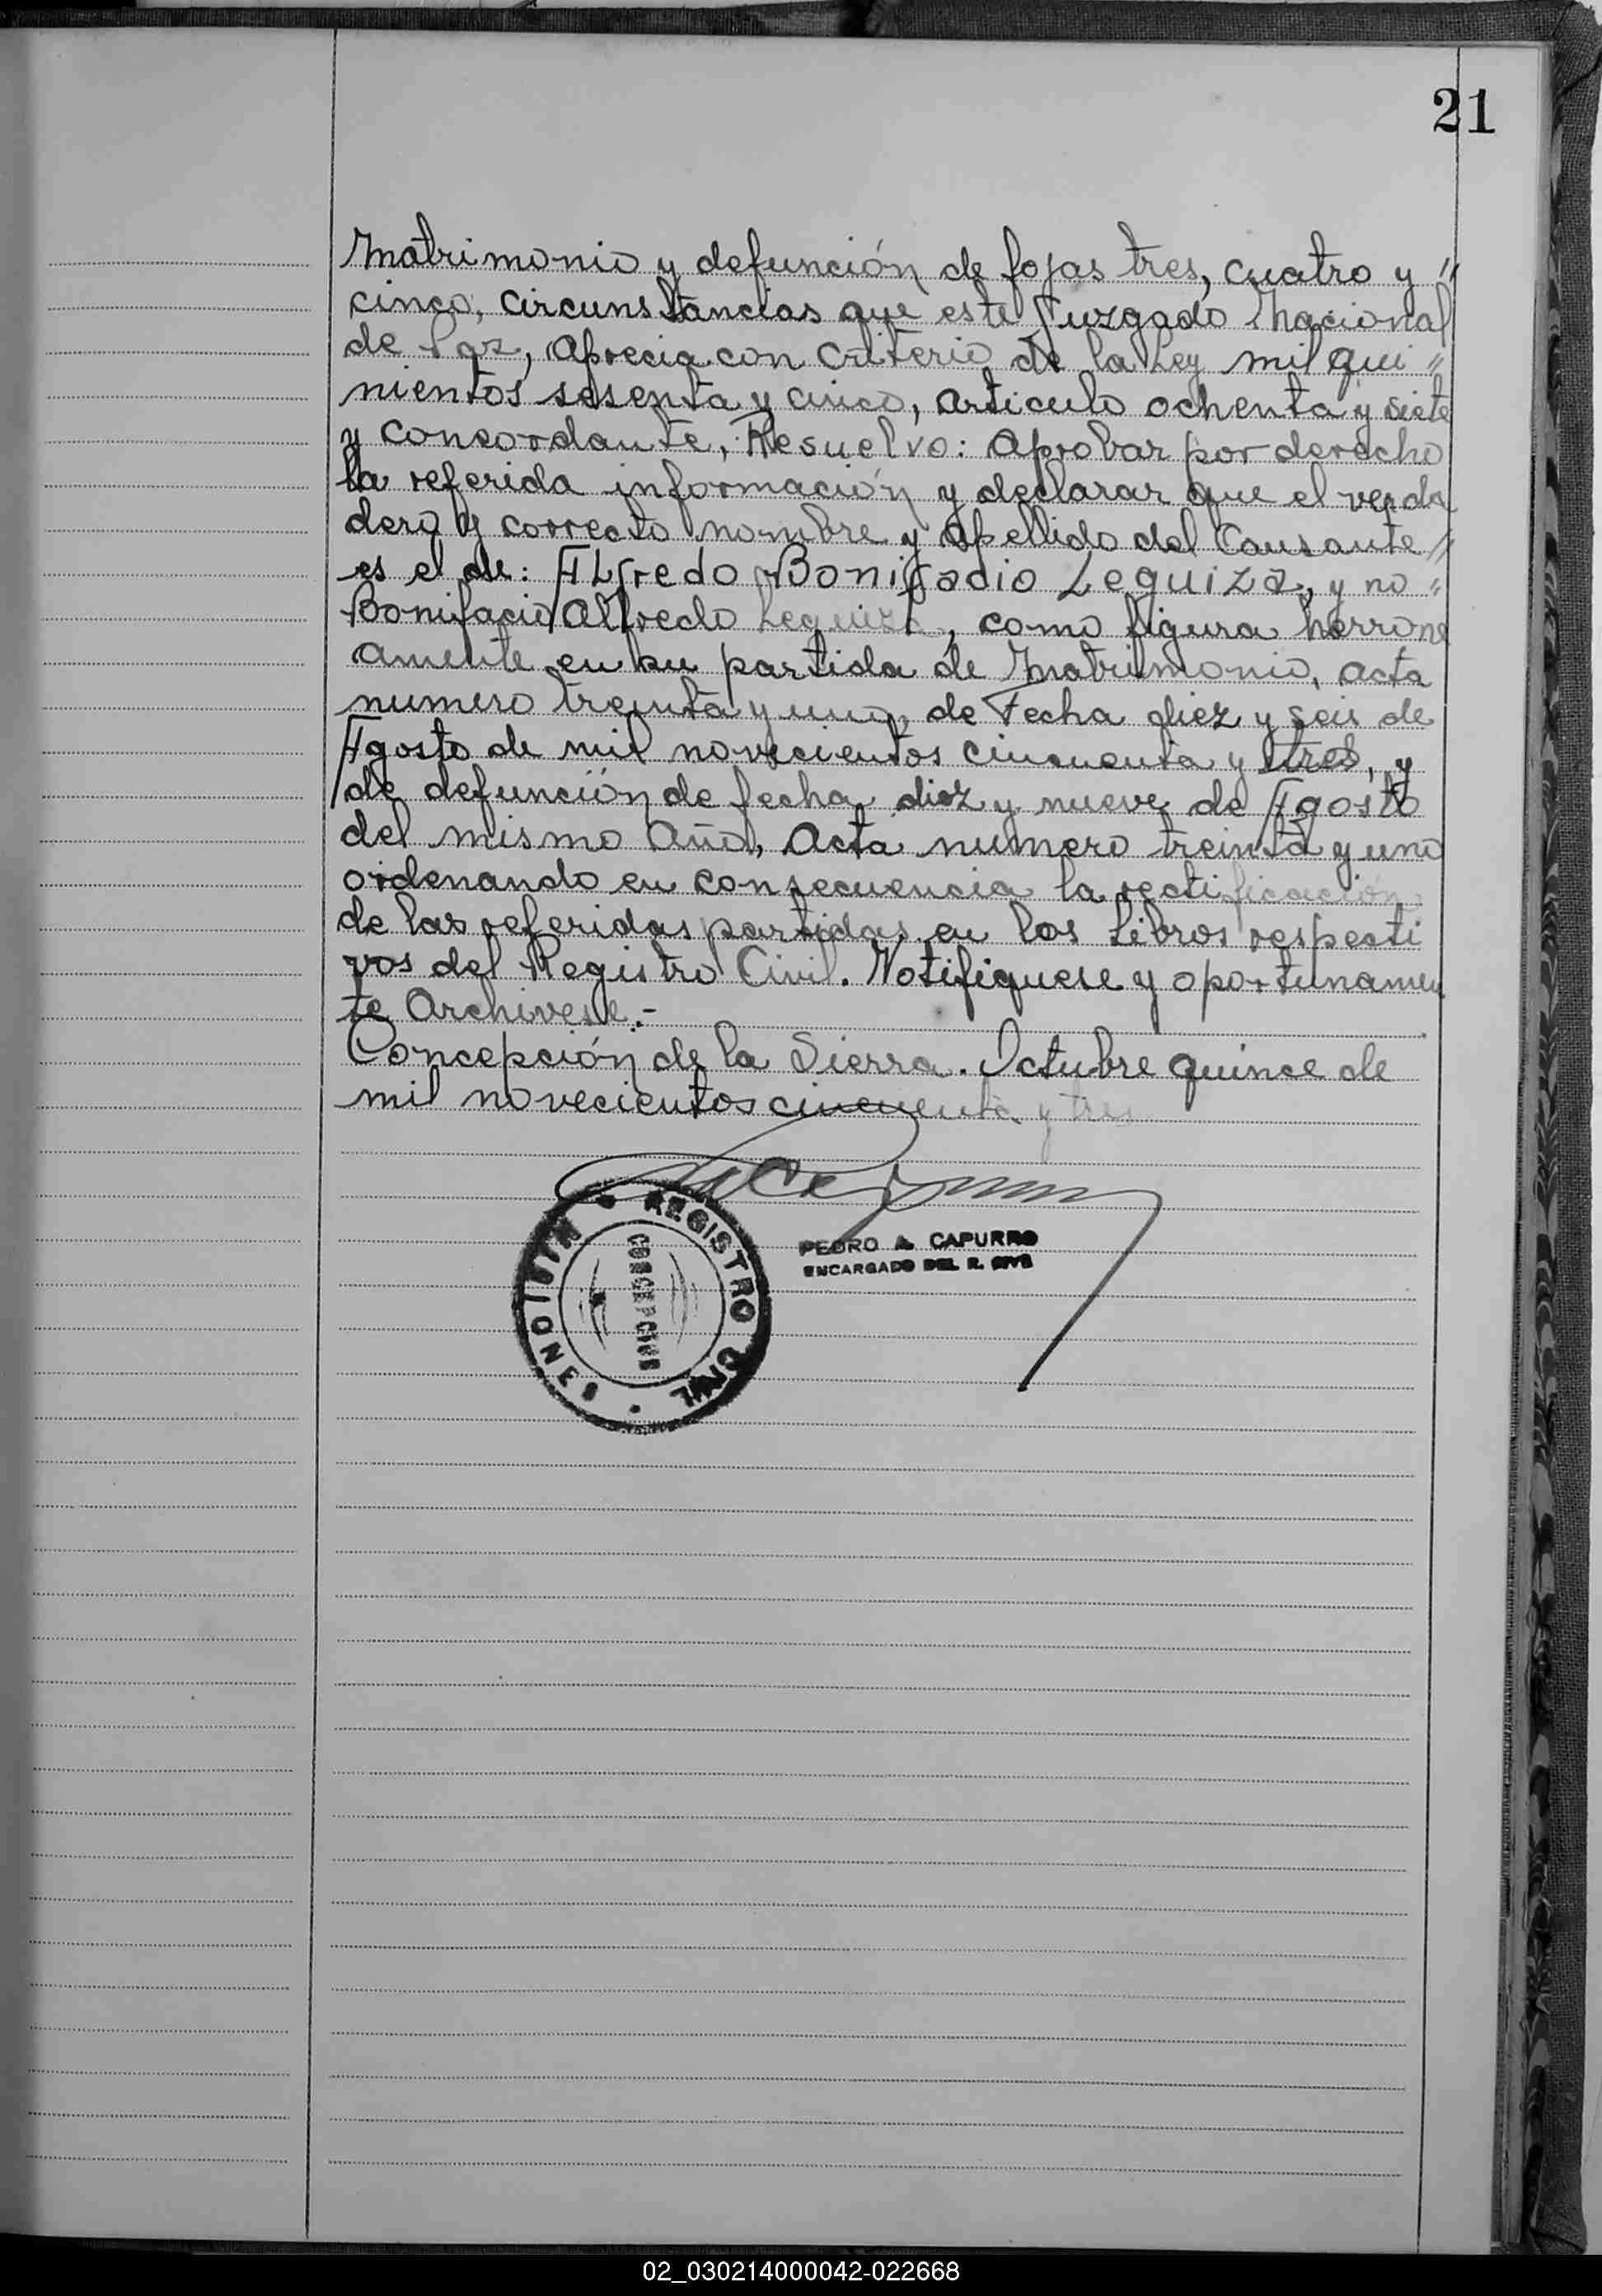 21
Matrimonio y defunción de fojas tres, cuatro y "
cinco, circunstancias que este Juzgado Nacional
de Paz, aprecia con criterio de la Ley mil qui "
nientos sesenta y cinco, articulo ochenta y siete
y concordante, Resuelvo: Aprobar por derecho
la referida información y declarar que el verda
dero y correcto nombre y apellido del Causante "
es el de: Alfredo Bonifacio Leguiza, y no "
Bonifacio Alfredo Leguiza, como figura herrone
amente en su partida de Matrimonio, acta
numero treinta y uno, de Fecha diez y seis de
Agosto de mil novecientos cincuenta y tres, y
de defunción de fecha diez y nueve de Agosto
del mismo Año, Acta numero treinta y uno
ordenando en consecuencia la rectificación
de las referidas partidas en los Libros respecti
vos del Registro Civil. Notifiquese y oportunamen
te Archivese.-
Concepción de la Sierra. Octubre quince de
mil novecientos cincuenta y tres
REGISTRO CIVIL
MISIONES
CONCEPCION
PEDRO A. CAPURRO
ENCARGADO DEL R. CIVIL
02_030214000042-022668